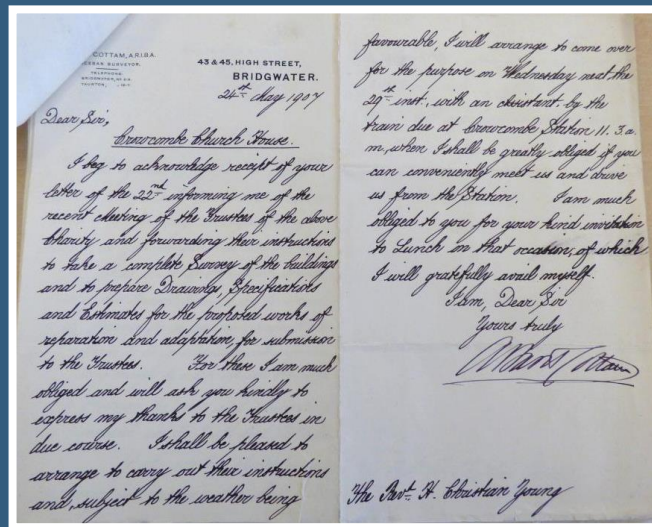 COTTAM, A.R.I.B.A.
SURVEYOR.
TELEPHONE
43 & 45, HIGH STREET,
BRIDGWATER.
24th May 1907
Dear Sir,
Crowcombe Church House.
I beg to acknowledge receipt of your
letter of the 22nd informing me of the
recent Meeting of the Trustees of the above
Charity and forwarding their instructions
to take a complete Survey of the buildings
and to prepare Drawings, Specifications
and Estimates for the proposed works of
reparation and adaptation, for submission
to the Trustees. For these I am much
obliged and will ask you kindly to
express my thanks to the Trustees in
due course. I shall be pleased to
arrange to carry out their instructions
and, subject to the weather being
favourable, I will arrange to come over
for the purpose on Wednesday next the
29th inst., with an assistant by the
train due at Crowcombe Station 11.3.a.
m, when I shall be greatly obliged if you
can conveniently meet us and drive
us from the Station. I am much
obliged to you for your kind invitation
to Lunch on that occasion, of which
I will gratefully avail myself.
I am, Dear Sir
Yours truly
Cottam
The Revd. H. Christian Young